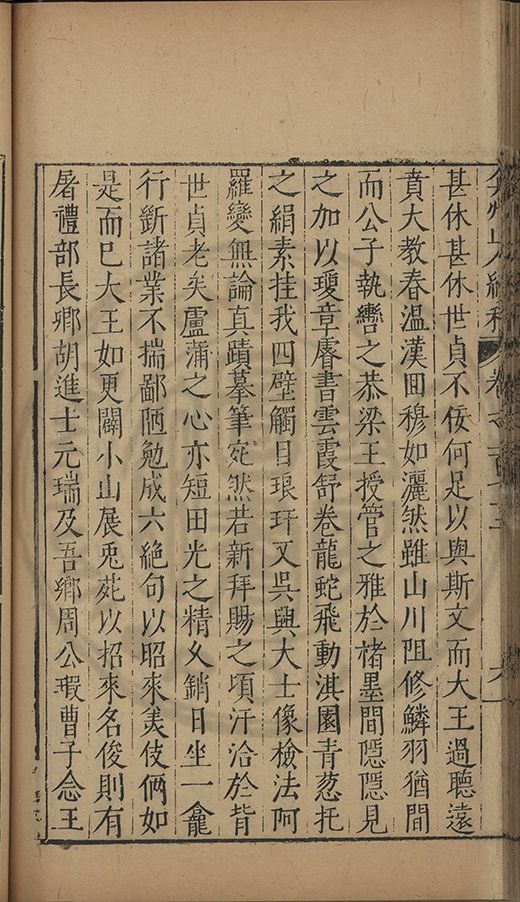 甚休甚休世貞不佞何足以與斯文而大王過聽遠
賁大教春溫漢回穆如灑然雖山川阻修鱗羽猶間
而公子執轡之恭梁王授管之雅於楮墨間隱隱見
之加以瓊章睿書雲霞舒卷龍蛇飛動淇園青葱托
之絹素挂我四壁觸目琅玕又吳興大士像檢法阿
羅變無論真蹟摹筆宛然若新拜賜之頃汗洽於背
世貞老矣盧蒲之心亦短田光之精久銷日坐一龕
行斷諸業不揣鄙陋勉成六絕句以昭來美伎倆如
是而已大王如更闢小山展兎苑以招來名俊則有
屠禮部長卿胡進士元瑞及吾鄉周公瑕曹子念王